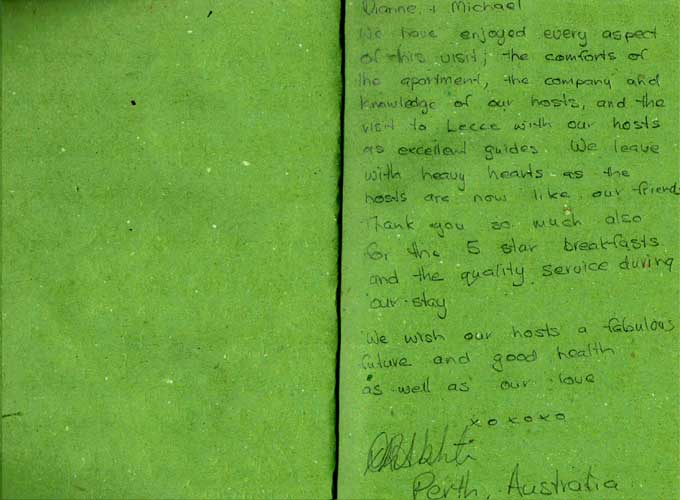 Dianne + Michael
We have enjoyed every aspect
of this visit; the comforts of
the apartment, the company and
knowledge of our hosts, and the
visit to Lecce with our hosts
as excellent guides. We leave
with heavy hearts as the
hosts are now like our friends
Thank you so much also
for the 5 star breakfasts
and the quality service during
our stay
We wish our hosts a fabulous
future and good health
as well as our love
xoxoxo
Perth, Australia